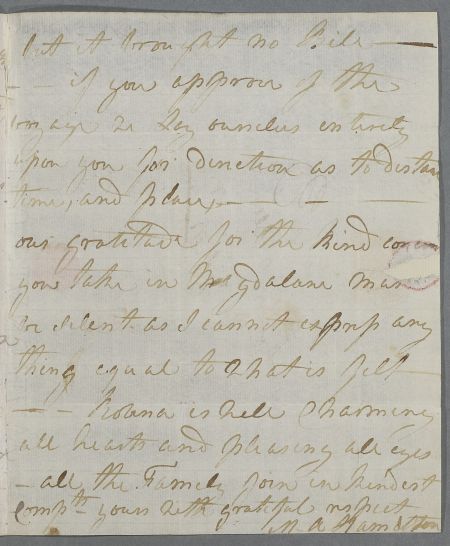 but it brought no Bile —
— — if you approve of the
voyage we Lay ourselves entirely
upon you for direction as to distan
time, and place, — — —
our gratitude for the kind concern
you take in Magdalane man
be silent as I cannot express any
thing equal to what is felt
— — Robina is well Charming
all hearts and pleasing all eyes
— all the Family join in kindest
Compts — yours with grateful respect
M A Hamilton